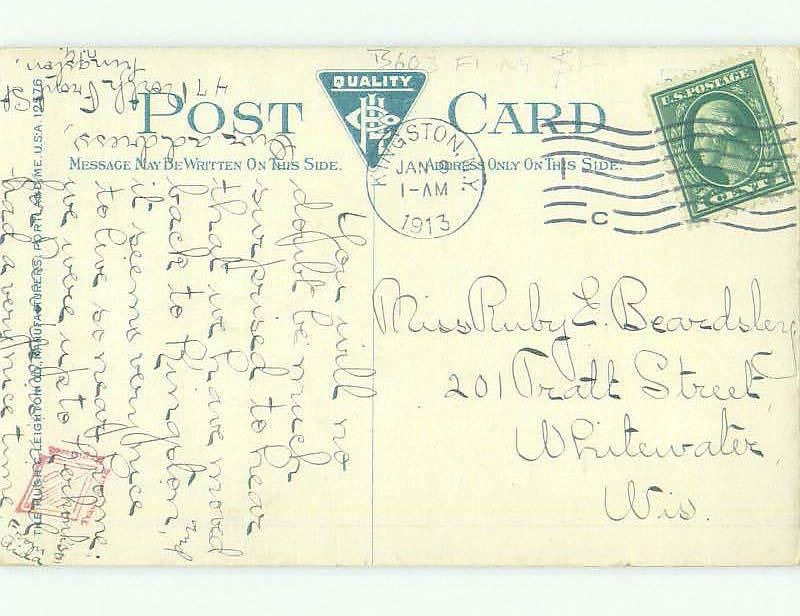 B603 F1 N4 $1-
QUALITY
POST CARD
MESSAGE MAY BE WRITTEN ON THIS SIDE.
ADDRESS ONLY ON THIS SIDE.
KINGSTON, N.Y.
JAN
1-AM
1913
C
U.S. POSTAGE
1 CENT 1
Miss Ruby E. Beardsley
201 Pratt Street,
Whitewater,
Wis.
You will no
doubt be much
surprised to hear
that we have moved
back to Kingston, and
it seems very nice
to live so near home.
we were up to
had a very nice time.
Our address,
47 North Front St
Kingston, N.Y.
THE HUGH C. LEIGHTON CO., MANUFACTURERS, PORTLAND, ME. U.S.A. 12476